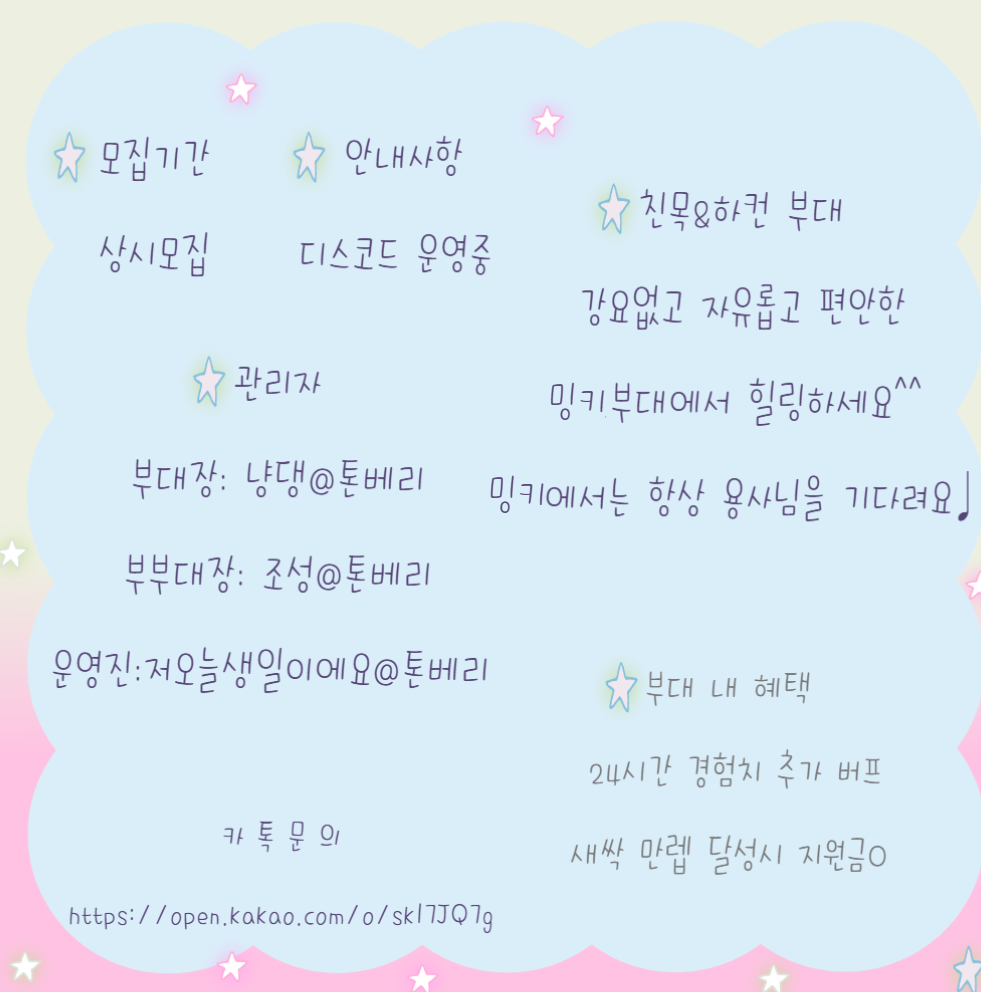 모집기간
상시모집
안내사항
디스코드 운영중
관리자
부대장: 냥댕@톤베리
부부대장: 조성@톤베리
운영진:저오늘생일이에요@톤베리
카 톡 문 의
https://open.kakao.com/o/skl7JQ7g
친목&하컨 부대
강요없고 자유롭고 편안한
밍키부대에서 힐링하세요^^
밍키에서는 항상 용사님을 기다려요♩
부대 내 혜택
24시간 경험치 추가 버프
새싹 만렙 달성시 지원금O